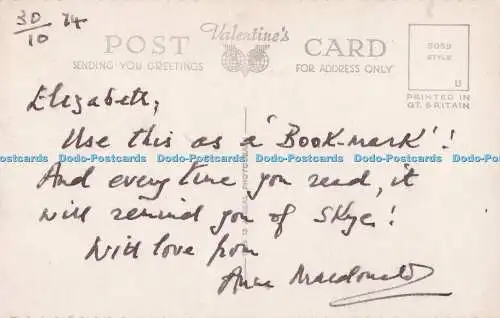 30/10 74
Valentine's
POST CARD
SENDING YOU GREETINGS
FOR ADDRESS ONLY
5059
STYLE
U
PRINTED IN
GT. BRITAIN
Elizabeth,
Use this as a 'Book-mark'!
Dodo-Postcards Dodo-Postcards Dodo-Postcards Dodo-Postcards Dodo-Postcards
And every time you read, it
will remind you of Skye!
With love from
Anne Macdonald